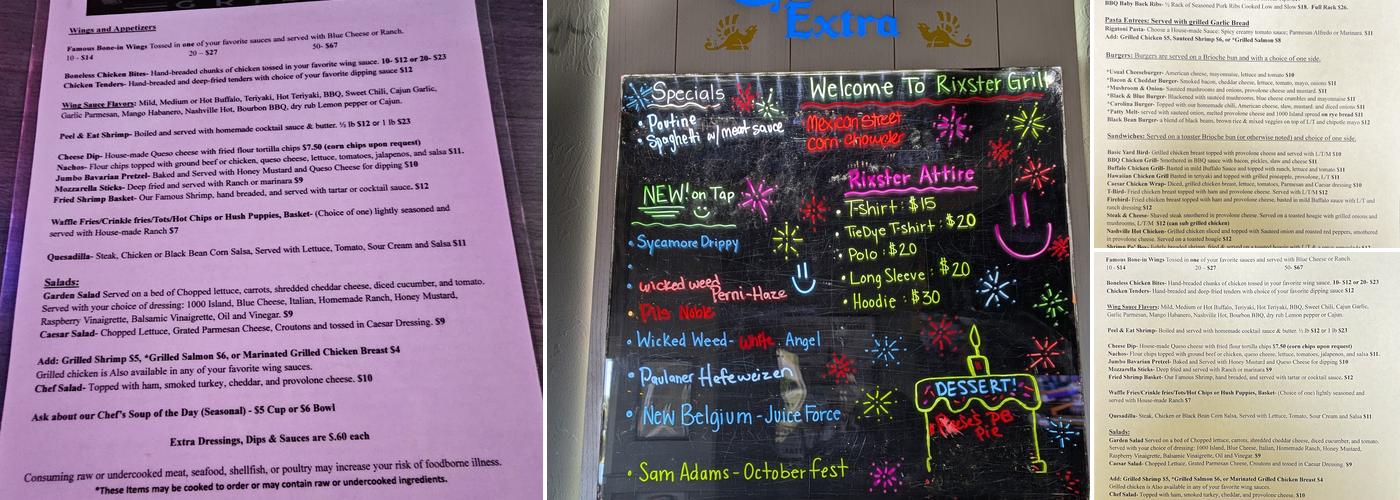 Wings and Appetizers
Famous Bone-in Wings Tossed in one of your favorite sauces and served with Blue Cheese or Ranch.
10 - $14 20 – $27 50- $67
Boneless Chicken Bites- Hand-breaded chunks of chicken tossed in your favorite wing sauce. 10- $12 or 20- $23
Chicken Tenders- Hand-breaded and deep-fried tenders with choice of your favorite dipping sauce $12
Wing Sauce Flavors: Mild, Medium or Hot Buffalo, Teriyaki, Hot Teriyaki, BBQ, Sweet Chili, Cajun Garlic,
Garlic Parmesan, Mango Habanero, Nashville Hot, Bourbon BBQ, dry rub Lemon pepper or Cajun.
Peel & Eat Shrimp- Boiled and served with homemade cocktail sauce & butter. ½ lb $12 or 1 lb $23
Cheese Dip- House-made Queso cheese with fried flour tortilla chips $7.50 (corn chips upon request)
Nachos- Flour chips topped with ground beef or chicken, queso cheese, lettuce, tomatoes, jalapenos, and salsa $11.
Jumbo Bavarian Pretzel- Baked and Served with Honey Mustard and Queso Cheese for dipping $10
Mozzarella Sticks- Deep fried and served with Ranch or marinara $9
Fried Shrimp Basket- Our Famous Shrimp, hand breaded, and served with tartar or cocktail sauce. $12
Waffle Fries/Crinkle fries/Tots/Hot Chips or Hush Puppies, Basket- (Choice of one) lightly seasoned and
served with House-made Ranch $7
Quesadilla- Steak, Chicken or Black Bean Corn Salsa, Served with Lettuce, Tomato, Sour Cream and Salsa $11
Salads:
Garden Salad Served on a bed of Chopped lettuce, carrots, shredded cheddar cheese, diced cucumber, and tomato.
Served with your choice of dressing: 1000 Island, Blue Cheese, Italian, Homemade Ranch, Honey Mustard,
Raspberry Vinaigrette, Balsamic Vinaigrette, Oil and Vinegar. $9
Caesar Salad- Chopped Lettuce, Grated Parmesan Cheese, Croutons and tossed in Caesar Dressing. $9
Add: Grilled Shrimp $5, *Grilled Salmon $6, or Marinated Grilled Chicken Breast $4
Grilled chicken is Also available in any of your favorite wing sauces.
Chef Salad- Topped with ham, smoked turkey, cheddar, and provolone cheese. $10
Ask about our Chef's Soup of the Day (Seasonal) - $5 Cup or $6 Bowl
Extra Dressings, Dips & Sauces are $.60 each
Consuming raw or undercooked meat, seafood, shellfish, or poultry may increase your risk of foodborne illness.
*These Items may be cooked to order or may contain raw or undercooked ingredients.
Extra
Specials
• Poutine
• Spaghetti w/ meat sauce
Welcome To Rixster Grill
Mexican street
corn chowder
NEW! on Tap
• Sycamore Drippy
• wicked weed
Perni-Haze
• Pils Noble
• Wicked Weed- White Angel
• Paulaner Hefeweizen
• New Belgium - Juice Force
• Sam Adams - Octoberfest
Rixster Attire
• T-shirt : $15
• TieDye T-shirt : $20
• Polo : $20
• Long Sleeve : $20
• Hoodie : $30
DESSERT!
Reese's PB
Pie
BBQ Baby Back Ribs- ½ Rack of Seasoned Pork Ribs Cooked Low and Slow $18. Full Rack $26.
Pasta Entrees: Served with grilled Garlic Bread
Rigatoni Pasta- Choose a House-made Sauce: Spicy creamy tomato sauce; Parmesan Alfredo or Marinara. $11
Add: Grilled Chicken $5, Sauteed Shrimp $6, or *Grilled Salmon $8
Burgers: Burgers are served on a Brioche bun and with a choice of one side.
*Usual Cheeseburger- American cheese, mayonnaise, lettuce and tomato $10
*Bacon & Cheddar Burger- Smoked bacon, cheddar cheese, lettuce, tomato, mayo, onions $11
*Mushroom & Onion- Sauteed mushrooms and onions, provolone cheese and mustard. $11
*Black & Blue Burger- Blackened with sauteed mushrooms, blue cheese crumbles and mayonnaise $11
*Carolina Burger- Topped with our homemade chili, American cheese, slaw, mustard; and diced onions $11
*Patty Melt- served with sauteed onion, melted provolone cheese and 1000 Island spread on rye bread $11
Black Bean Burger- a blend of black beans, brown rice & mixed veggies on top of L/T and chipotle mayo $12
Sandwiches: Served on a toaster Brioche bun (or otherwise noted) and choice of one side.
Basic Yard Bird- Grilled chicken breast topped with provolone cheese and served with L/T/M $10
BBQ Chicken Grill- Smothered in BBQ sauce with bacon, pickles, slaw and cheese $11
Buffalo Chicken Grill- Basted in mild Buffalo Sauce and topped with ranch, lettuce and tomato $11
Hawaiian Chicken Grill Basted in teriyaki and topped with grilled pineapple, provolone, L/T $11
Caesar Chicken Wrap- Diced, grilled chicken breast, lettuce, tomatoes, Parmesan and Caesar dressing $10
T-Bird- Fried chicken breast topped with ham and provolone cheese. Served with L/T/M $12
Firebird- Fried chicken breast topped with ham and provolone cheese, basted in mild Buffalo sauce with L/T and
ranch dressing $12
Steak & Cheese- Shaved steak smothered in provolone cheese. Served on a toasted hoagie with grilled onions and
mushrooms, L/T/M $12 (can sub grilled chicken)
Nashville Hot Chicken- Grilled chicken sliced and topped with Sauteed onion and roasted red peppers, smothered
in provolone cheese. Served on a toasted hoagie $12
Famous Bone-in Wings Tossed in one of your favorite sauces and served with Blue Cheese or Ranch.
10 - $14 20 – $27 50- $67
Boneless Chicken Bites- Hand-breaded chunks of chicken tossed in your favorite wing sauce. 10- $12 or 20- $23
Chicken Tenders- Hand-breaded and deep-fried tenders with choice of your favorite dipping sauce $12
Wing Sauce Flavors: Mild, Medium or Hot Buffalo, Teriyaki, Hot Teriyaki, BBQ, Sweet Chili, Cajun Garlic,
Garlic Parmesan, Mango Habanero, Nashville Hot, Bourbon BBQ, dry rub Lemon pepper or Cajun.
Peel & Eat Shrimp- Boiled and served with homemade cocktail sauce & butter. ½ lb $12 or 1 lb $23
Cheese Dip- House-made Queso cheese with fried flour tortilla chips $7.50 (corn chips upon request)
Nachos- Flour chips topped with ground beef or chicken, queso cheese, lettuce, tomatoes, jalapenos, and salsa $11.
Jumbo Bavarian Pretzel- Baked and Served with Honey Mustard and Queso Cheese for dipping $10
Mozzarella Sticks- Deep fried and served with Ranch or marinara $9
Fried Shrimp Basket- Our Famous Shrimp, hand breaded, and served with tartar or cocktail sauce. $12
Waffle Fries/Crinkle fries/Tots/Hot Chips or Hush Puppies, Basket- (Choice of one) lightly seasoned and
served with House-made Ranch $7
Quesadilla- Steak, Chicken or Black Bean Corn Salsa, Served with Lettuce, Tomato, Sour Cream and Salsa $11
Salads:
Garden Salad Served on a bed of Chopped lettuce, carrots, shredded cheddar cheese, diced cucumber, and tomato.
Served with your choice of dressing: 1000 Island, Blue Cheese, Italian, Homemade Ranch, Honey Mustard,
Raspberry Vinaigrette, Balsamic Vinaigrette, Oil and Vinegar. $9
Caesar Salad- Chopped Lettuce, Grated Parmesan Cheese, Croutons and tossed in Caesar Dressing. $9
Add: Grilled Shrimp $5, *Grilled Salmon $6, or Marinated Grilled Chicken Breast $4
Grilled chicken is Also available in any of your favorite wing sauces.
Chef Salad- Topped with ham, smoked turkey, cheddar, and provolone cheese. $10